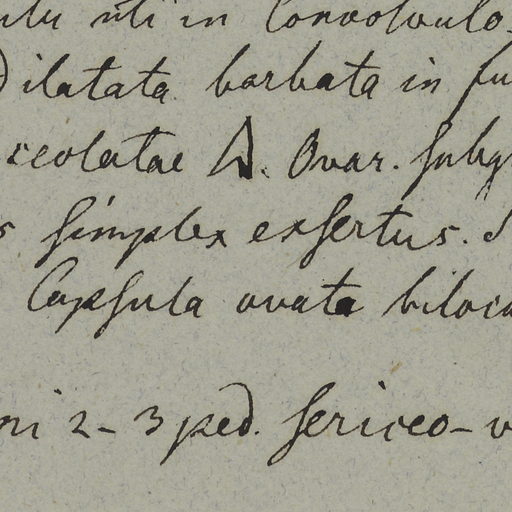 uti in Convolvulo
Dilatata barbata in fu
ceolatae A. Ovar. subg
s simplex exsertus. S
Capsula ovata bilocu
ni 2-3 ped. sericeo-v